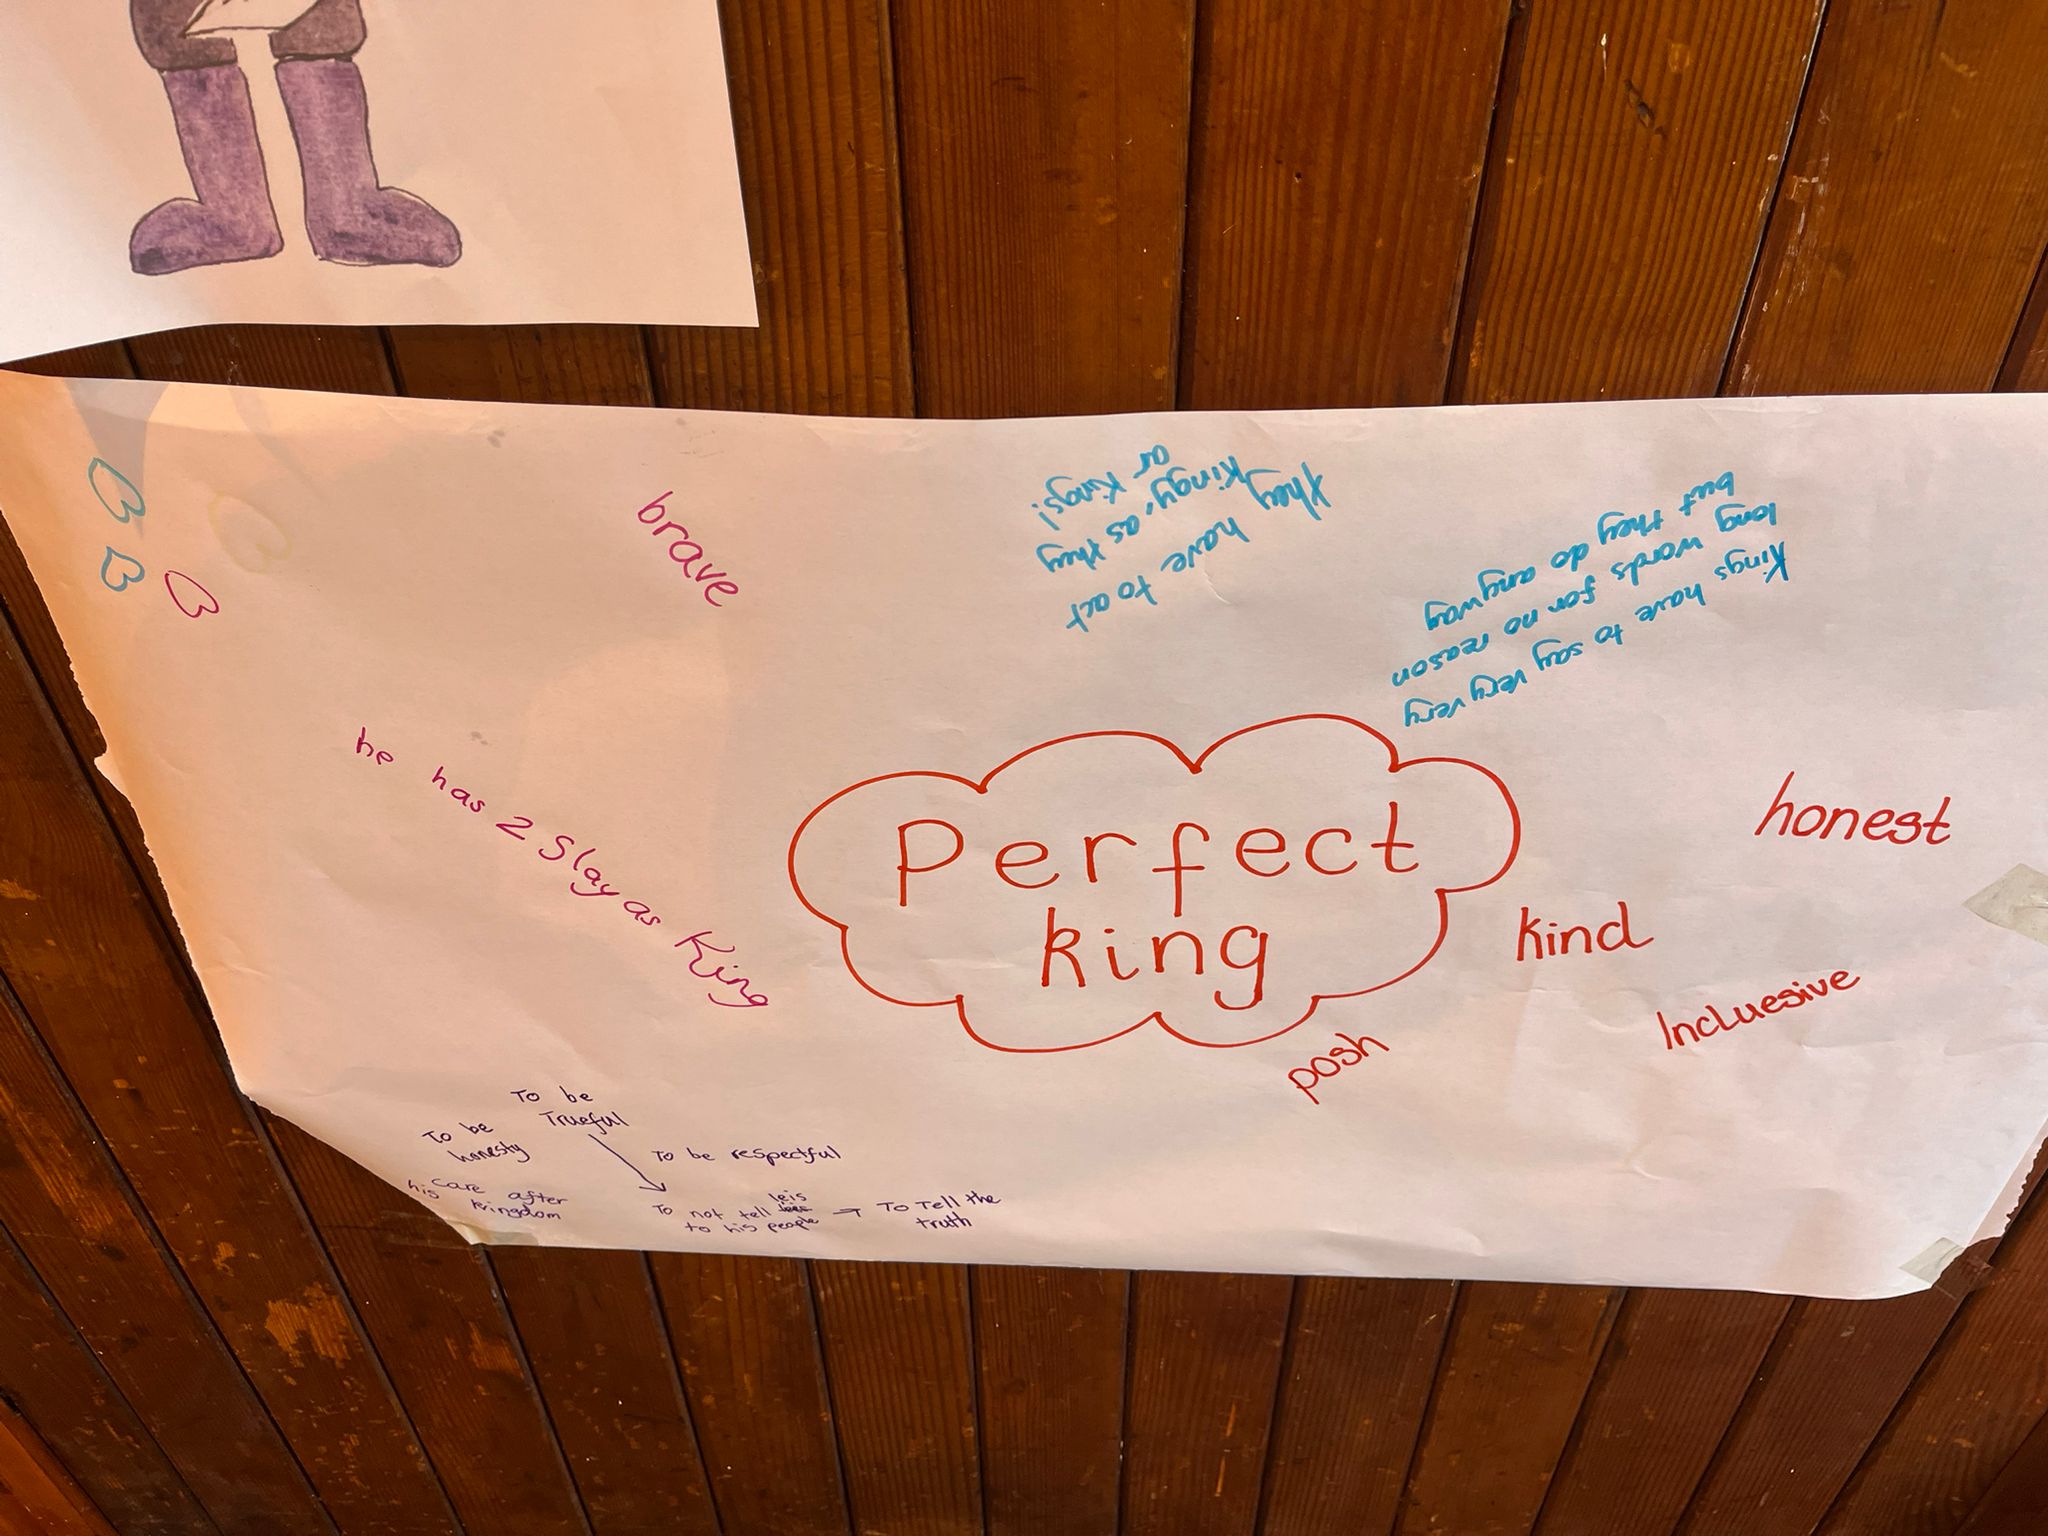 brave
they have to act
kingy, as they
ar kings!
kings have to say very very
long words for no reason
but they do anyway
he has 2 Slay as King
Perfect
king
honest
kind
Incluesive
posh
To be
Trueful
To be
honesty
To be respectful
Care after
his kringdom
To not tell leis
to his people
→ To Tell the
truth